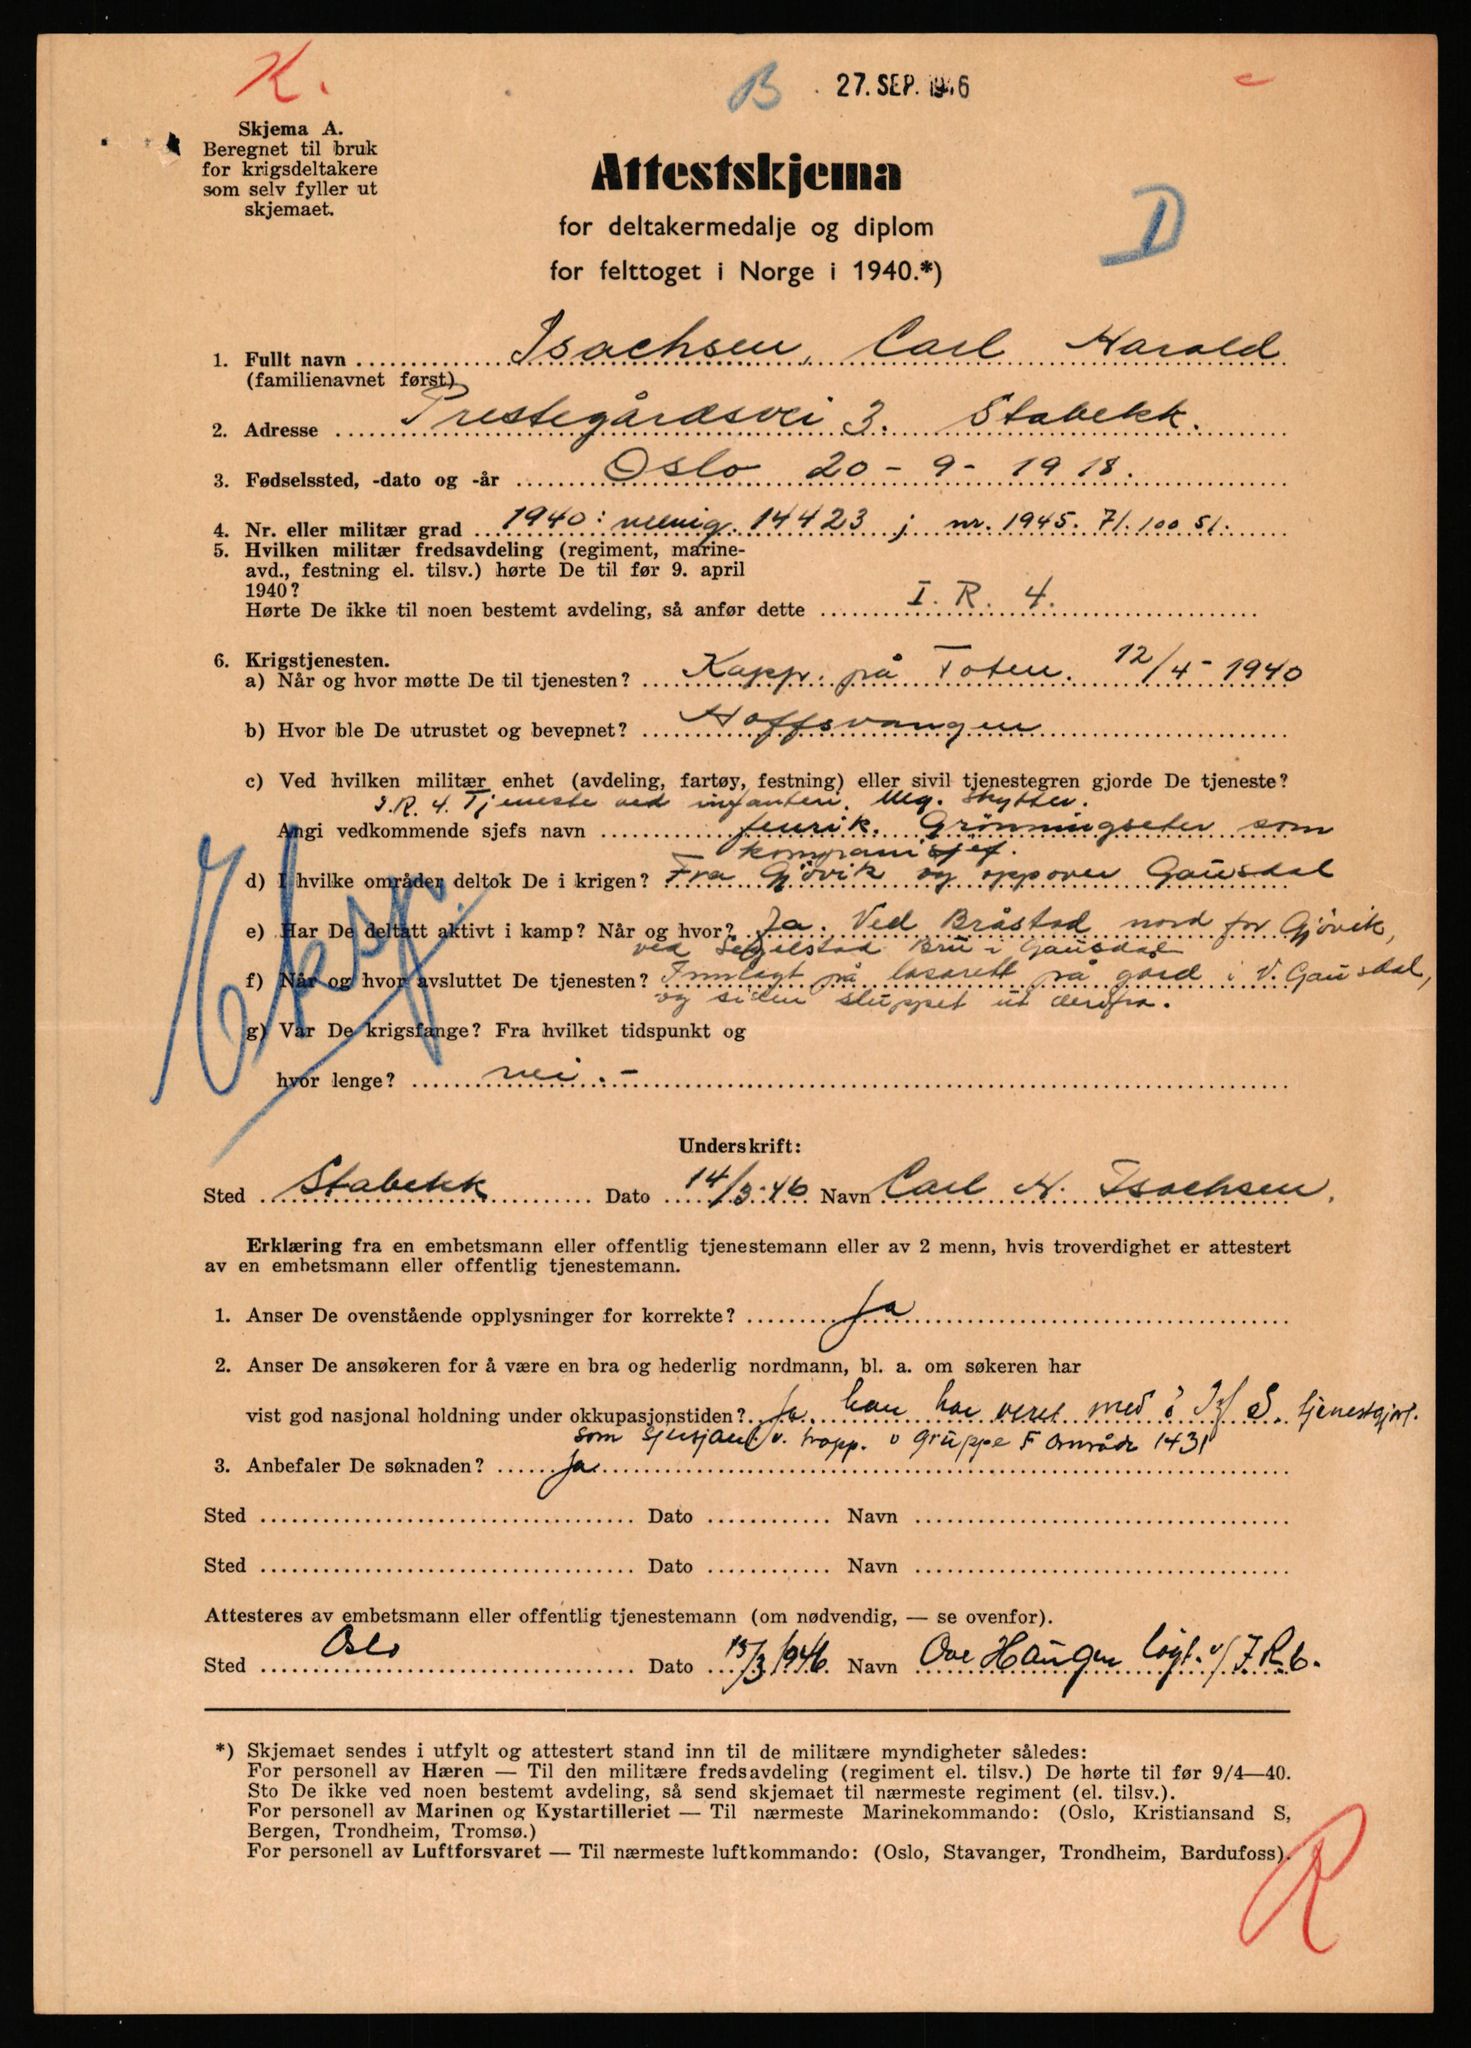 K.
B
27. SEP. 1946
Skjema A.
Beregnet til bruk
for krigsdeltakere
som selv fyller ut
skjemaet.
Attestskjema
for deltakermedalje og diplom
for felttoget i Norge i 1940.*)
D
1. Fullt navn Isachsen, Carl Harald
(familienavnet først)
2. Adresse Prestegårdsvei 3. Stabekk.
3. Fødselssted, -dato og -år Oslo 20-9-1918.
4. Nr. eller militær grad 1940: menig. 14423 ; nr. 1945. 71.100 51.
5. Hvilken militær fredsavdeling (regiment, marine-
avd., festning el. tilsv.) hørte De til før 9. april
1940?
Hørte De ikke til noen bestemt avdeling, så anfør dette I. R. 4.
6. Krigstjenesten.
a) Når og hvor møtte De til tjenesten? Kapp. på Toten. 12/4-1940
b) Hvor ble De utrustet og bevepnet? Hoffsvangen
c) Ved hvilken militær enhet (avdeling, fartøy, festning) eller sivil tjenestegren gjorde De tjeneste?
I.R. 4. Tjeneste ved infanteri. Mg. skytter.
Angi vedkommende sjefs navn fenrik. Grønningseter som
kompanisjef.
d) I hvilke områder deltok De i krigen? Fra Gjøvik og oppover Gausdal
e) Har De deltatt aktivt i kamp? Når og hvor? Ja. Ved Bråstad nord for Gjøvik,
ved Segelstad Bru i Gausdal
f) Når og hvor avsluttet De tjenesten? Innlagt på lasarett på gård i V. Gausdal,
og siden sluppet ut derfra.
g) Var De krigsfange? Fra hvilket tidspunkt og
hvor lenge? nei.-
Eksp.
Underskrift:
Sted Stabekk Dato 14/3-46 Navn Carl H. Isachsen.
Erklæring fra en embetsmann eller offentlig tjenestemann eller av 2 menn, hvis troverdighet er attestert
av en embetsmann eller offentlig tjenestemann.
1. Anser De ovenstående opplysninger for korrekte? Ja
2. Anser De ansøkeren for å være en bra og hederlig nordmann, bl. a. om søkeren har
vist god nasjonal holdning under okkupasjonstiden? Ja. han har veret med i tjenestgjort.
som sjersjant v. tropp. v gruppe F område 1431
3. Anbefaler De søknaden? Ja
Sted Dato Navn
Sted Dato Navn
Attesteres av embetsmann eller offentlig tjenestemann (om nødvendig, — se ovenfor).
Sted Oslo Dato 15/3 1946 Navn Ove Haugen løgt. v/ I.R. 6.
*) Skjemaet sendes i utfylt og attestert stand inn til de militære myndigheter således:
For personell av Hæren — Til den militære fredsavdeling (regiment el. tilsv.) De hørte til før 9/4—40.
Sto De ikke ved noen bestemt avdeling, så send skjemaet til nærmeste regiment (el. tilsv.).
For personell av Marinen og Kystartilleriet — Til nærmeste Marinekommando: (Oslo, Kristiansand S,
Bergen, Trondheim, Tromsø.)
For personell av Luftforsvaret — Til nærmeste luftkommando: (Oslo, Stavanger, Trondheim, Bardufoss).
R